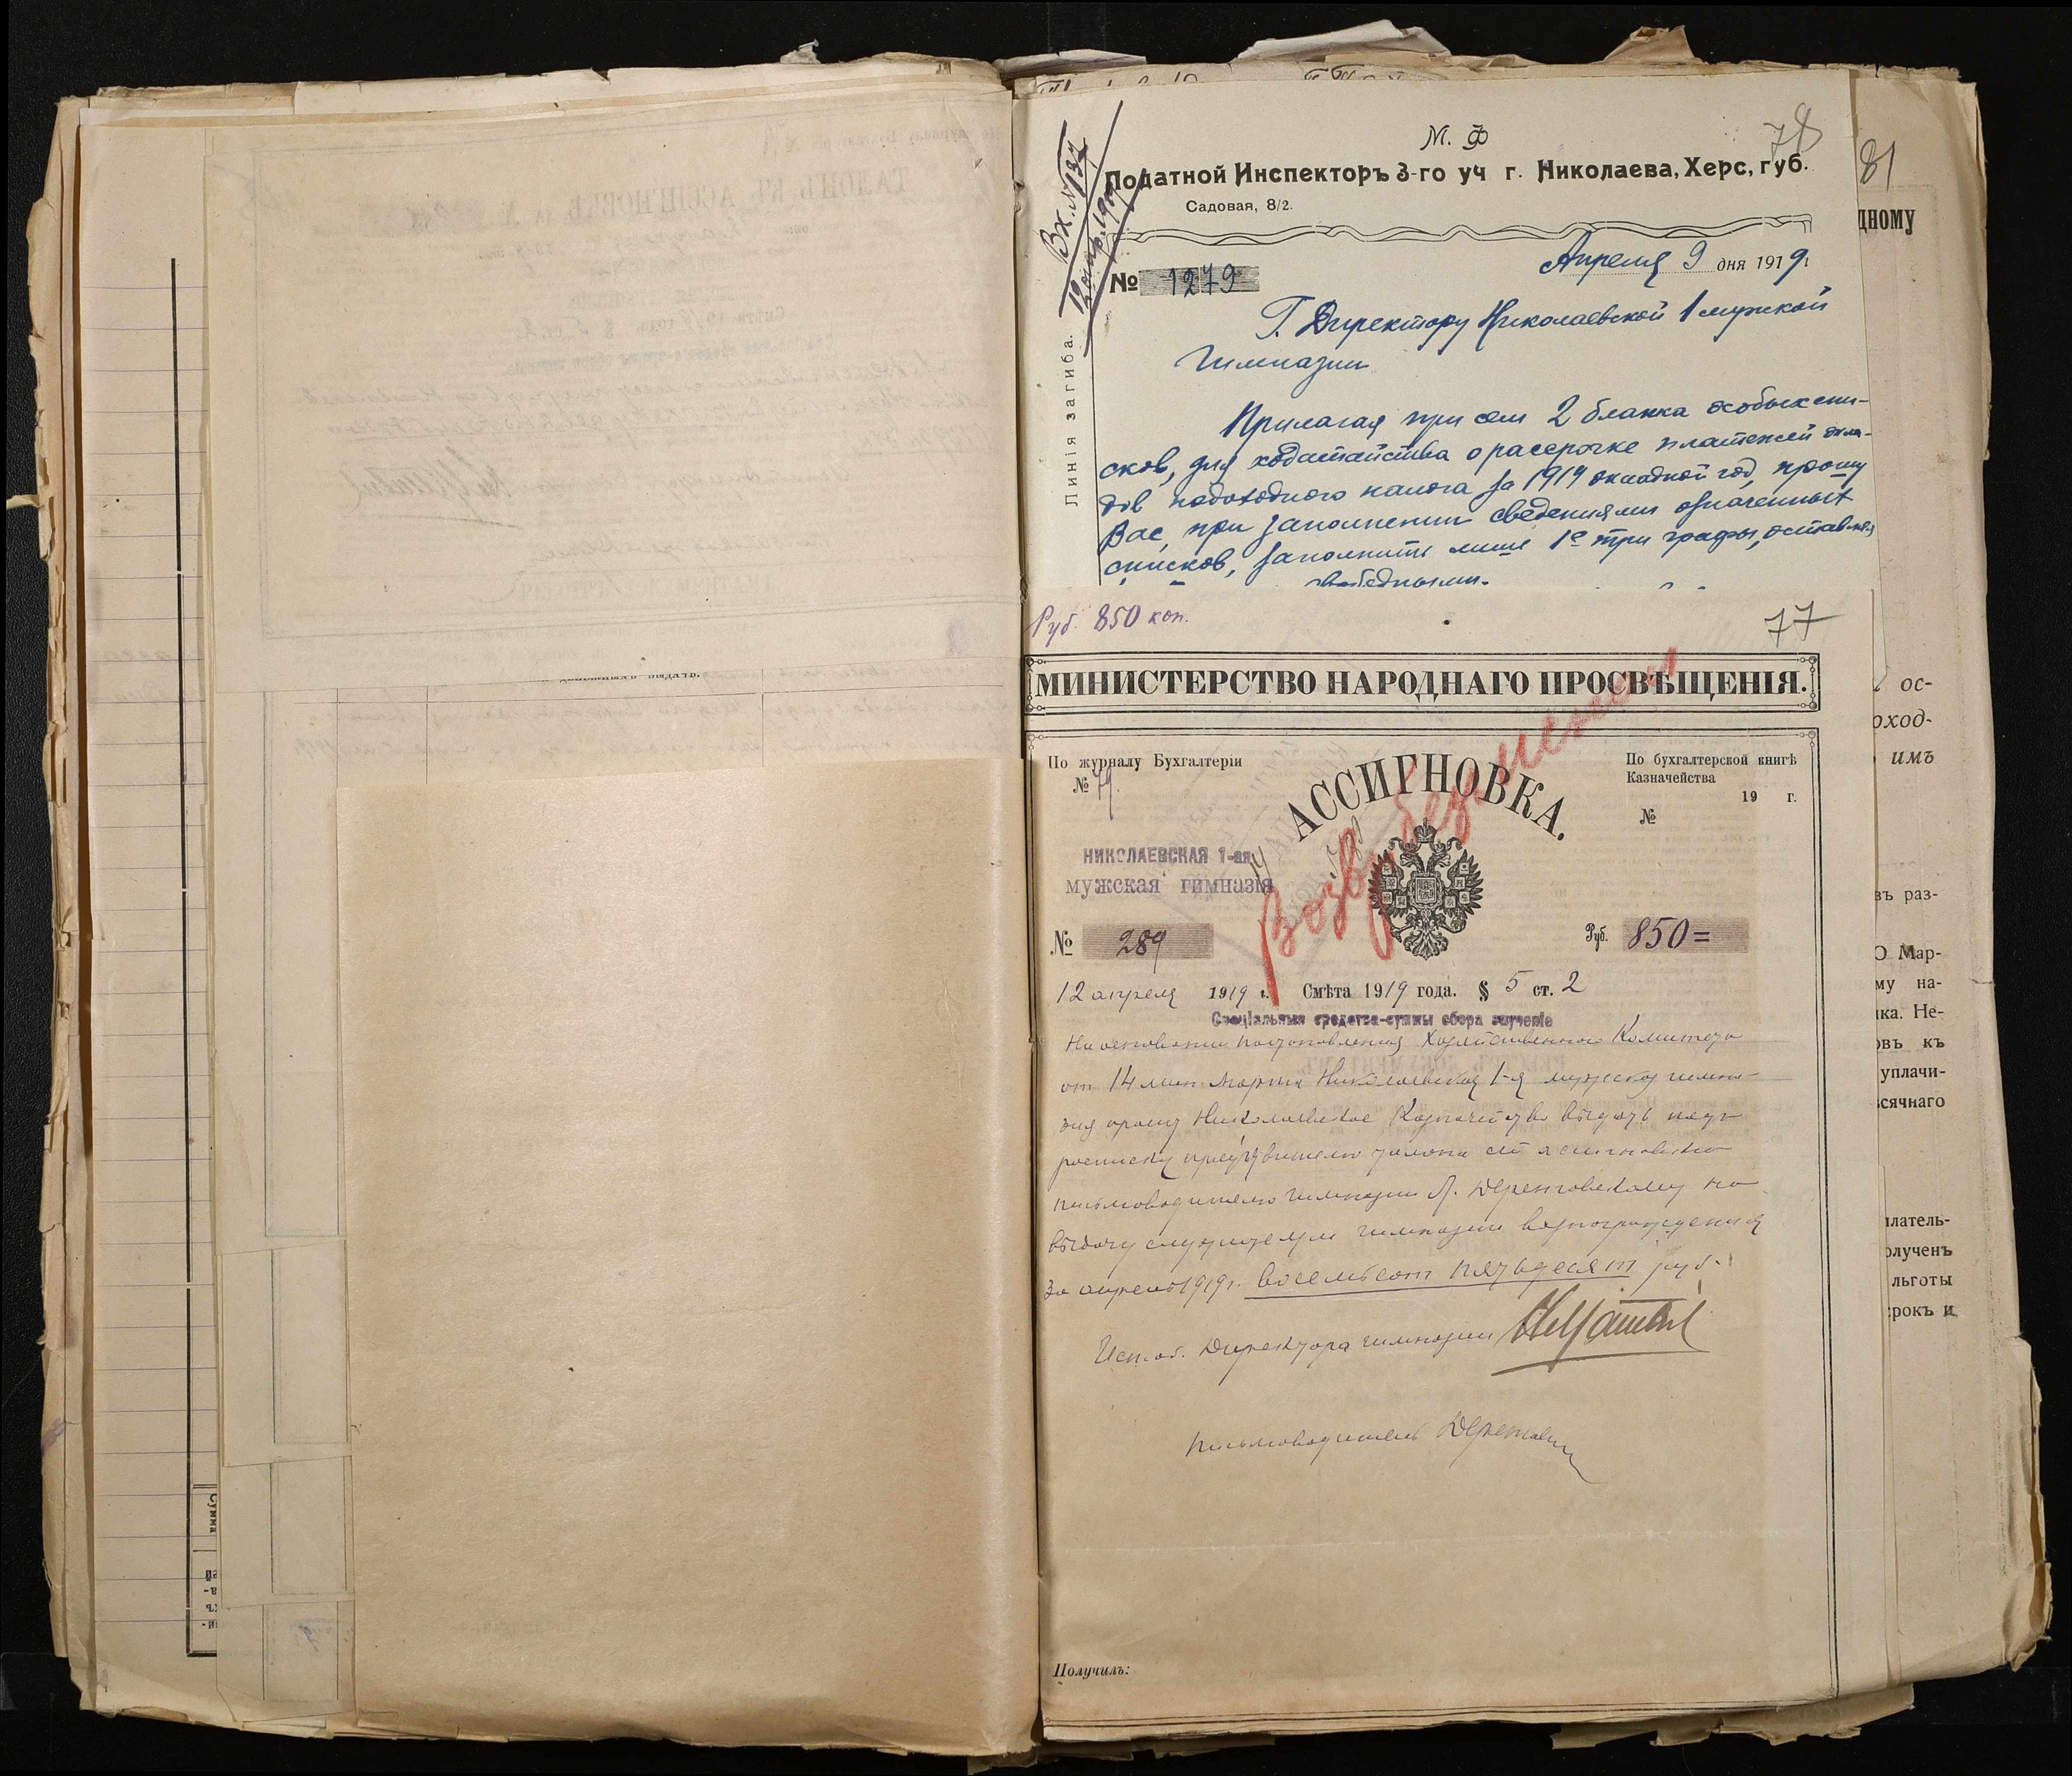 78
М. Ф
Податной Инспекторъ 3-го уч г. Николаева, Херс, губ.
Садовая, 8/2.
Вх. №
№ 1279
Апреля 9 дня 1919 г.
Линія загиба.
Г. Директору Николаевской 1 мужской
Гимназии
Прилагая при сем 2 бланка особых спи-
сков, для ходатайства о рассрочке платежей окла-
дов подоходного налога за 1919 окладной год, прошу
Вас, при заполнении сведениями означенных
списков, заполнить лишь 1е три графы, оставляя
свободными.
Руб. 850 коп.
77
МИНИСТЕРСТВО НАРОДНАГО ПРОСВѢЩЕНІЯ.
По журналу Бухгалтеріи
№ 79.
АССИГНОВКА.
По бухгалтерской книгѣ
Казначейства
19 г.
№
НИКОЛАЕВСКАЯ 1-ая
мужская гимназія
№ 289
Руб. 850=
12 апреля 1919 г. Смѣта 1919 года. § 5 ст. 2
Спеціальныя средства-суммы сбора заученіе
На основании постановления Хозяйственного Комитета
от 14 мин. марта Николаевская 1-я мужская гимна-
зия просит Николаевское Казначейство выдать под
росписку предъявителю талона сей ассигновки
письмоводителю гимназии Деренговскому на
выдачу служителям гимназии вознаграждения
за апрель 1919 г. Восемьсот пятьдесят руб.
Исп. об. Директора гимназии
письмоводитель
Получилъ:
81
дному
ос-
оход-
имъ
въ раз-
О Мар-
му на-
ка. Не-
овъ къ
уплачи-
сячнаго
платель-
олученъ
льготы
рокъ и
денежныхъ выдачъ.
Сумма